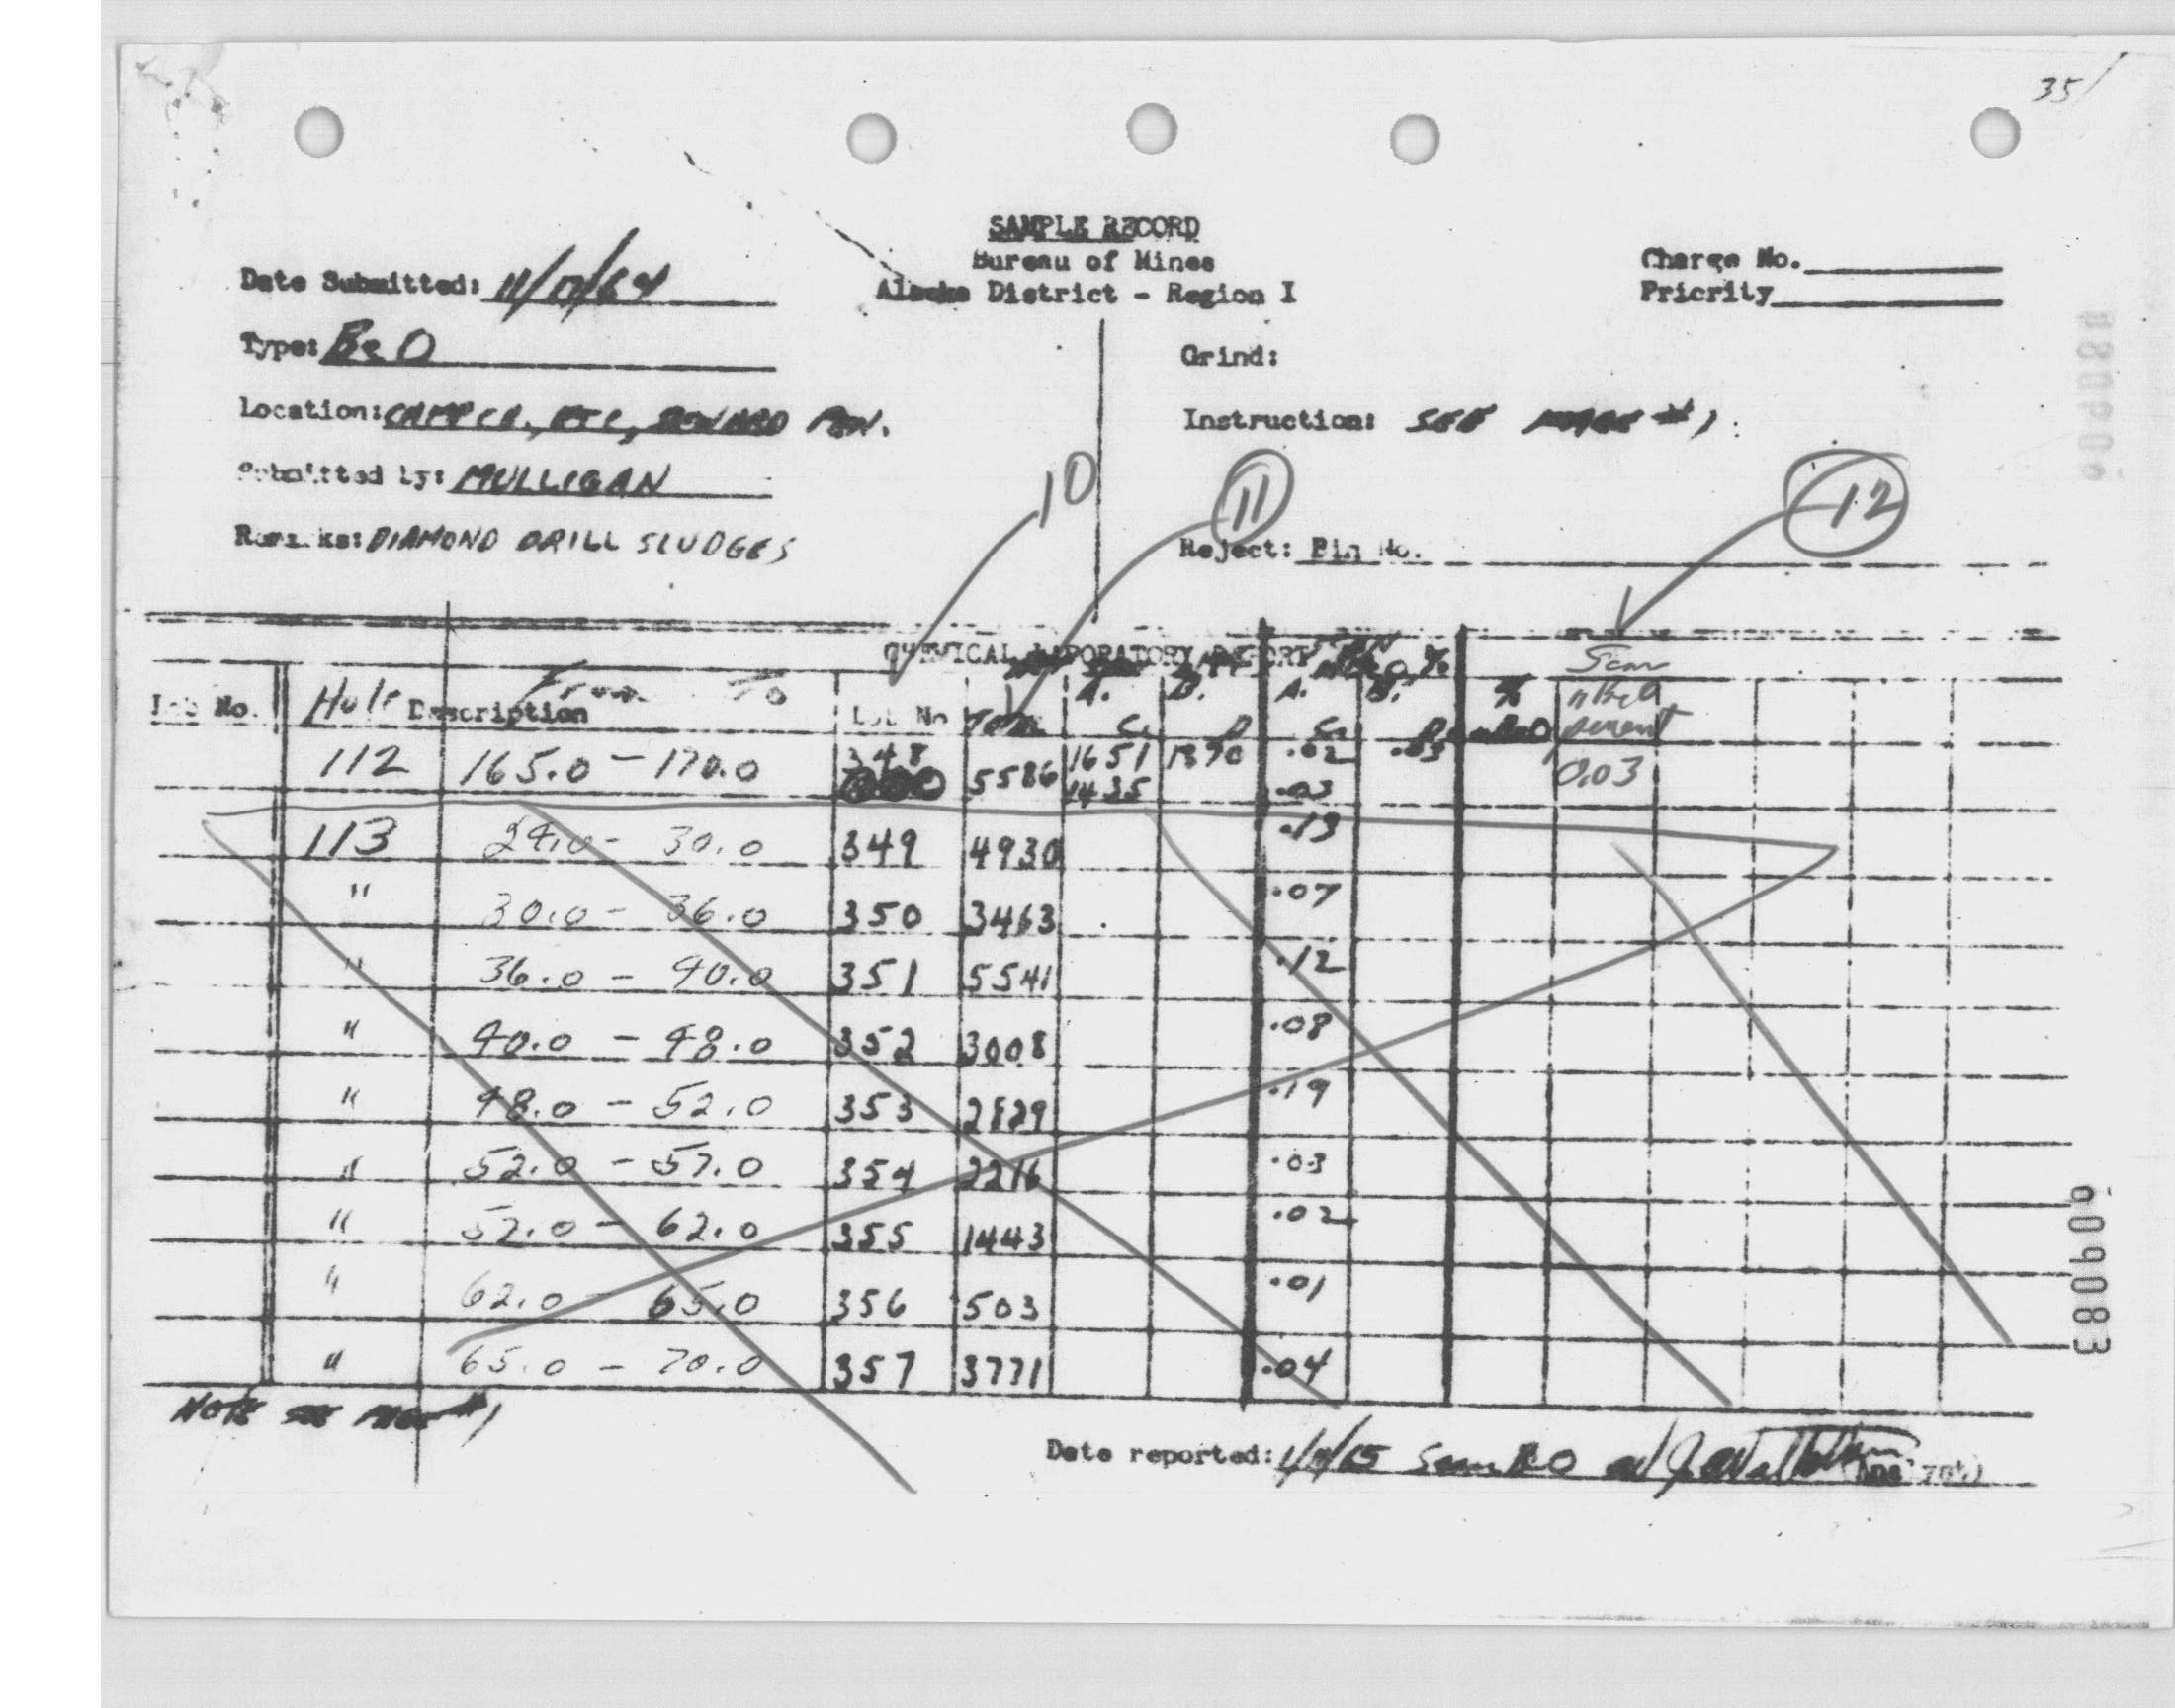 35/
SAMPLE RECORD
Bureau of Mines
Alaska District - Region I
Date Submitted: 11/17/64
Charge No.
Priority
Type: BeO
Grind:
Location: CAMP CR., ETC, SEWARD PEN.
Instruction: SEE PAGE #1.
Submitted by: MULLIGAN
10
11
12
Remarks: DIAMOND DRILL SLUDGES
Reject: Bin No.
CHEMICAL LABORATORY REPORT
Lab No. Hole Description From To Lot No
A. B. A. B. %
percent
112 165.0 - 170.0 348 5586 1651 1890 .02 .03 0.03
1435 .03
113 24.0 - 30.0 349 4930 .13
" 30.0 - 36.0 350 3463 .07
" 36.0 - 40.0 351 5541 .12
" 40.0 - 48.0 352 3008 .08
" 48.0 - 52.0 353 2829 .19
" 52.0 - 57.0 354 2216 .03
" 57.0 - 62.0 355 1443 .02
" 62.0 - 65.0 356 503 .01
" 65.0 - 70.0 357 3771 .04
NOTE SEE PAGE #1
Date reported: